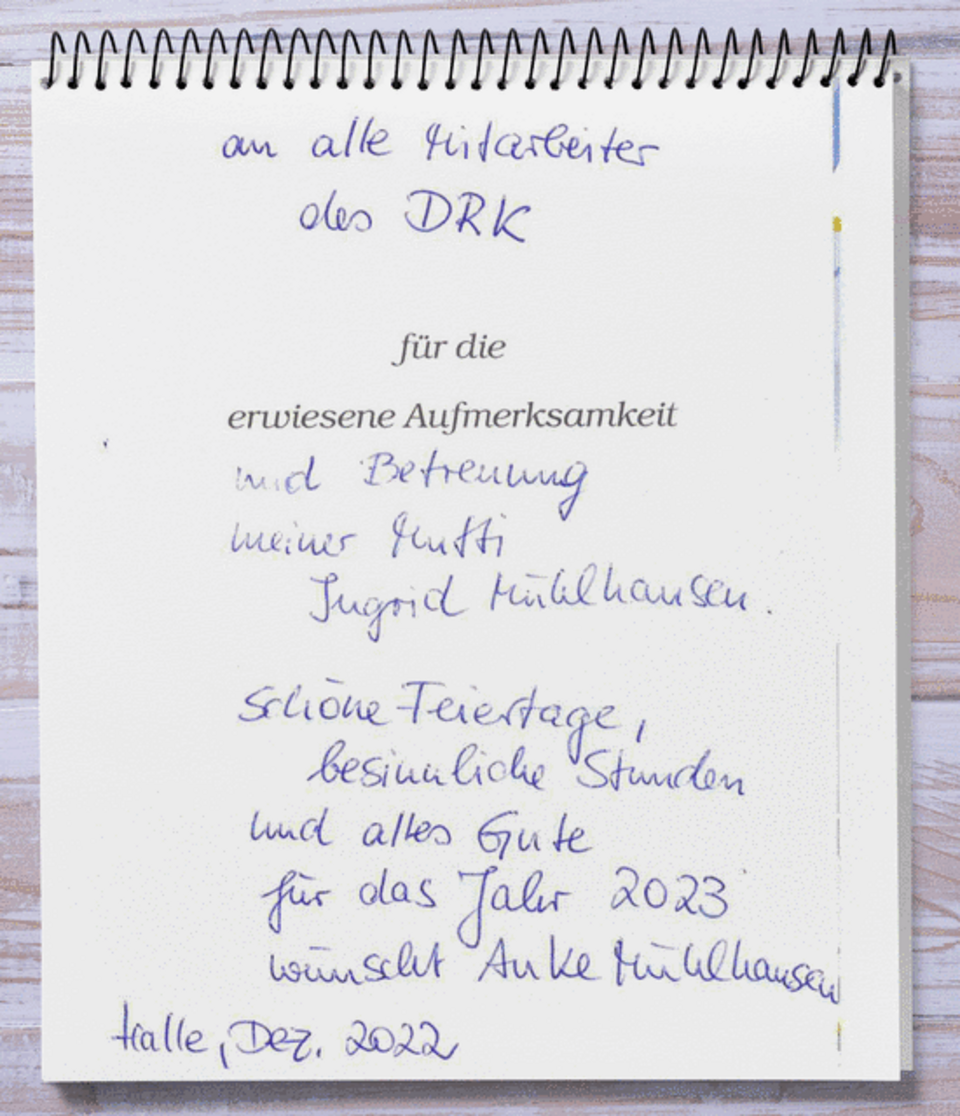 an alle Mitarbeiter
des DRK
für die
erwiesene Aufmerksamkeit
und Betreuung
meiner Mutti
Ingrid Mühlhausen.
Schöne Feiertage,
besinnliche Stunden
und alles Gute
für das Jahr 2023
wünscht Anke Mühlhausen
Halle, Dez. 2022